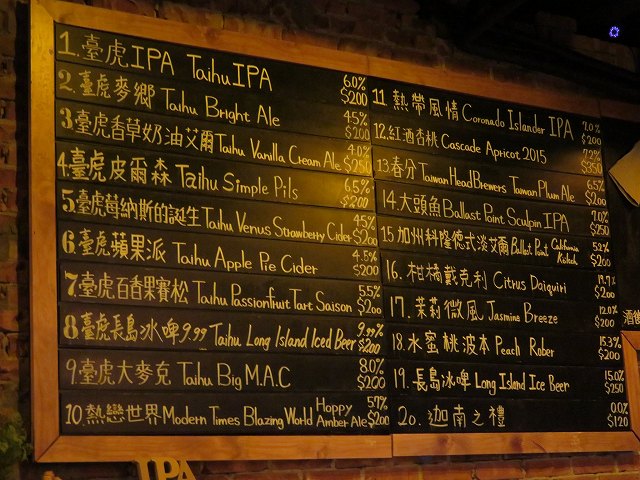 1.臺虎IPA Taihu IPA 6.0% $200
2.臺虎麥鄉 Taihu Bright Ale 4.5% $200
3.臺虎香草奶油艾爾 Taihu Vanilla Cream Ale 4.0% $250
4.臺虎皮爾森 Taihu Simple Pils 6.5% $200
5.臺虎莓納斯的誕生 Taihu Venus Strawberry Cider 4.5% $200
6.臺虎蘋果派 Taihu Apple Pie Cider 4.5% $200
7.臺虎百香果賽松 Taihu Passionfruit Tart Saison 5.5% $200
8.臺虎長島冰啤9.99 Taihu Long Island Iced Beer 9.99% $200
9.臺虎大麥克 Taihu Big M.A.C 8.0% $200
10.熱戀世界 Modern Times Blazing World Hoppy Amber Ale 5.7% $200
11 熱帶風情 Coronado Islander IPA 7.0% $200
12.紅酒杏桃 Cascade Apricot 2015 7.2% $350
13.春分 Taiwan Head Brewers Taiwan Plum Ale 6.5% $200
14.大頭魚 Ballast Point Sculpin IPA 7.0% $250
15.加州科隆德式淡艾爾 Ballast Point California Kolsch 5.2% $200
16.柑橘戴克利 Citrus Daiquiri $200
17.茉莉微風 Jasmine Breeze 12.0% $200
18.水蜜桃波本 Peach Rober 15.3% $200
19.長島冰啤 Long Island Ice Beer 15.0% $250
20.迦南之禮 0.0% $120
IPA